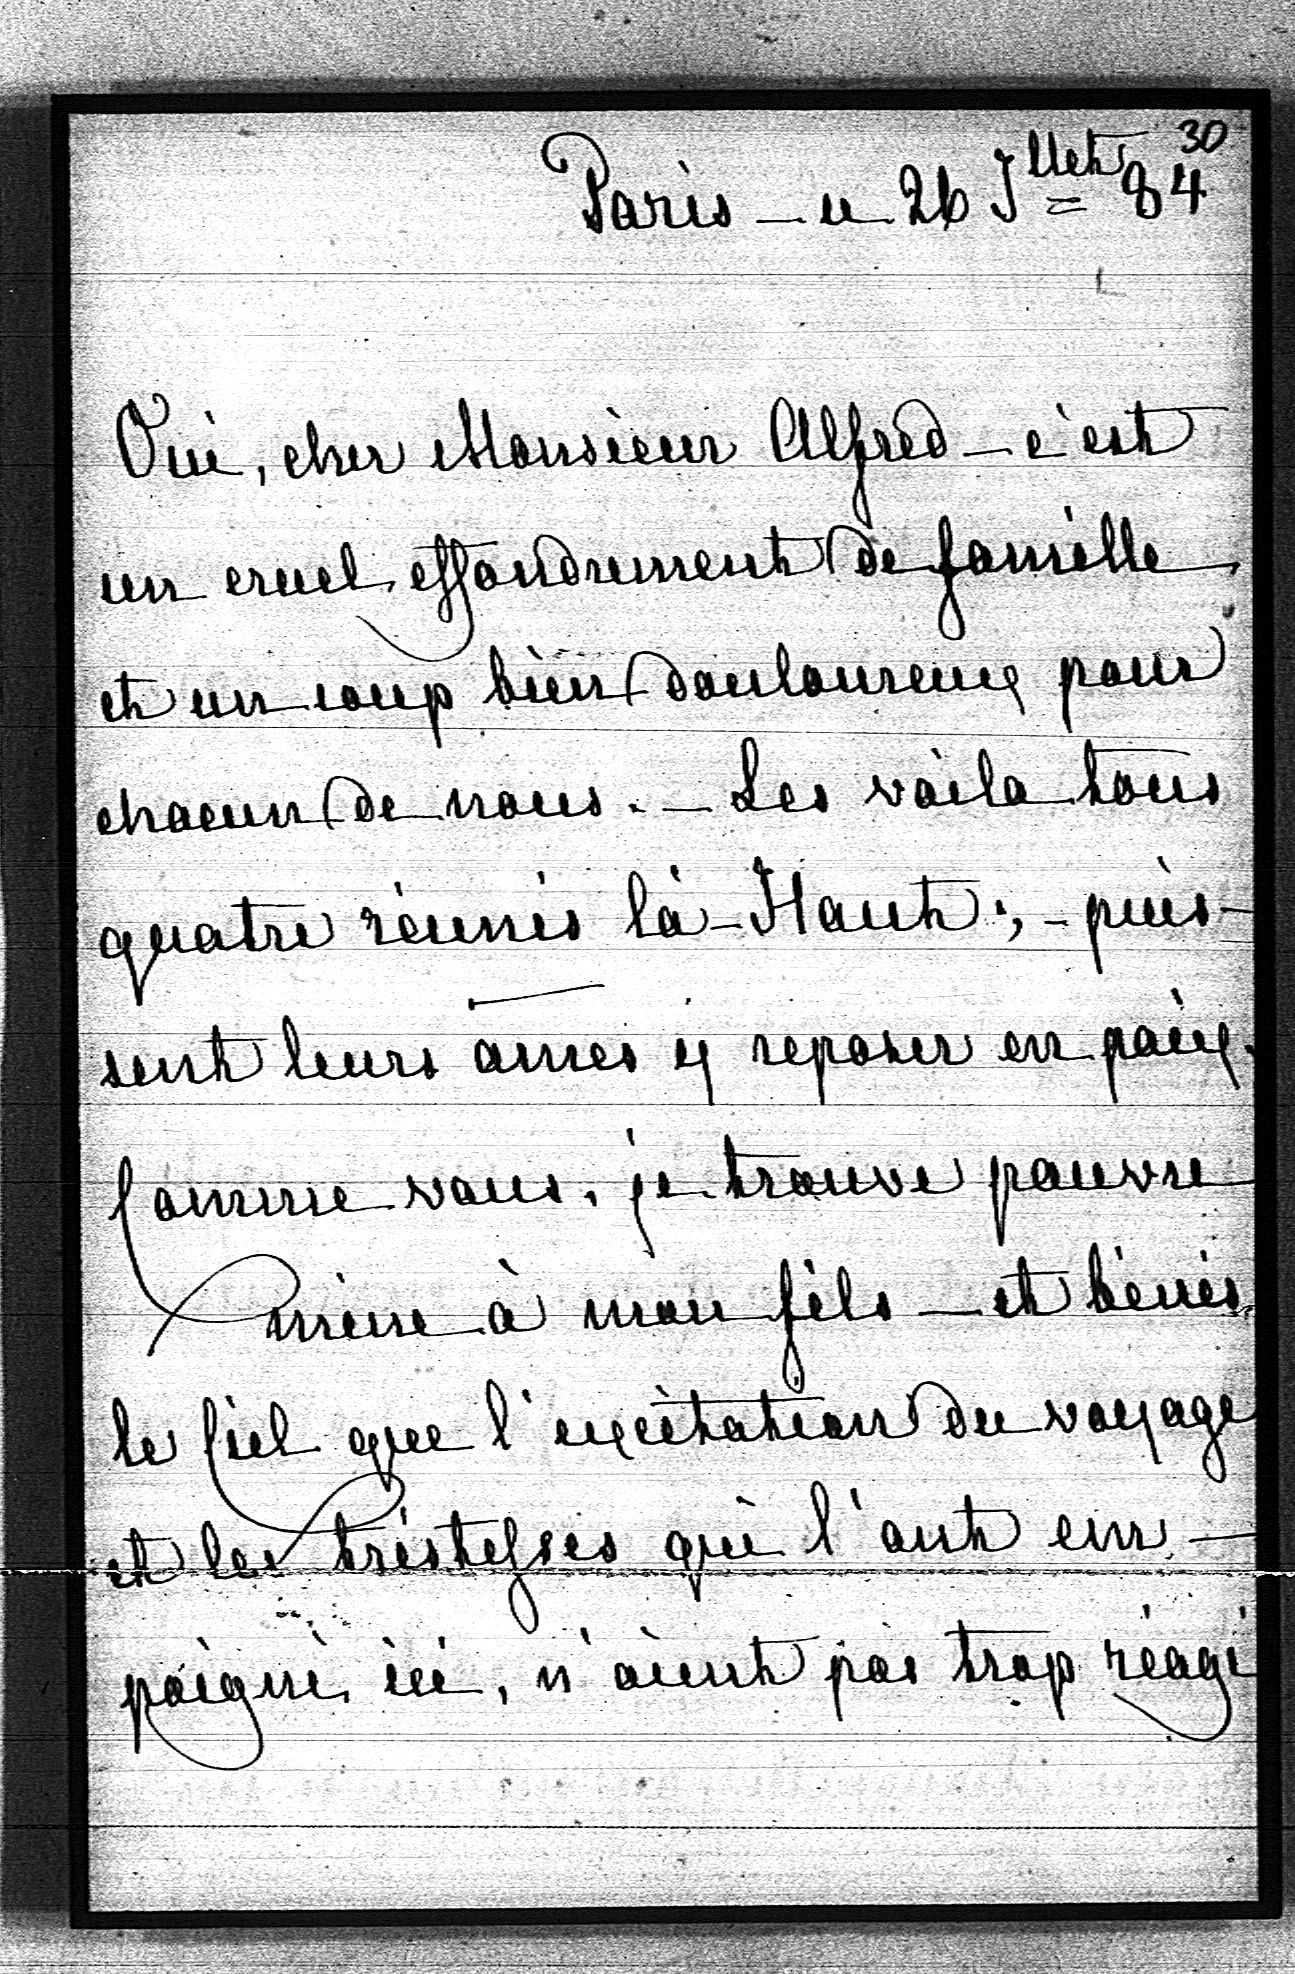 30
Paris — ce 26 Jllet = 84
Oui, cher Monsieur Alfred — c'est
un cruel effondrement de famille,
et un coup bien douloureux pour
chacun de nous. — Les voila tous
quatre réunis là-Haut ; — puis-
sent leurs ames y reposer en paix.
Comme vous, je trouve pauvre
mine à mon fils — et bénis
le Ciel que l'excitation du voyage
et les tristesses qui l'ont em-
poigné ici, n'aient pas trop réagi